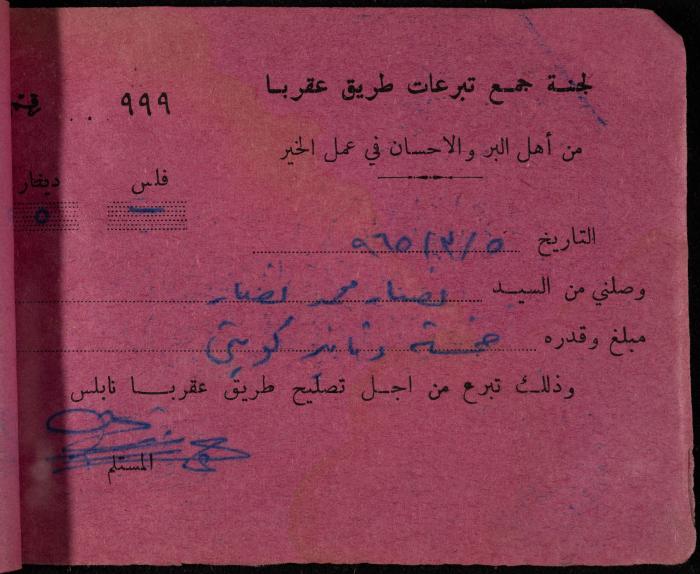 لجنة جمع تبرعات طريق عقربا
٩٩٩
من أهل البر والاحسان في عمل الخير
فلس دينار
— ٥
التاريخ ٥/٣/٩٦٥
وصلني من السيد نصار محمد نصار
مبلغ وقدره خمسة دنانير كويتي
وذلك تبرع من اجل تصليح طريق عقربا نابلس
المستلم